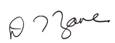 D J Zane